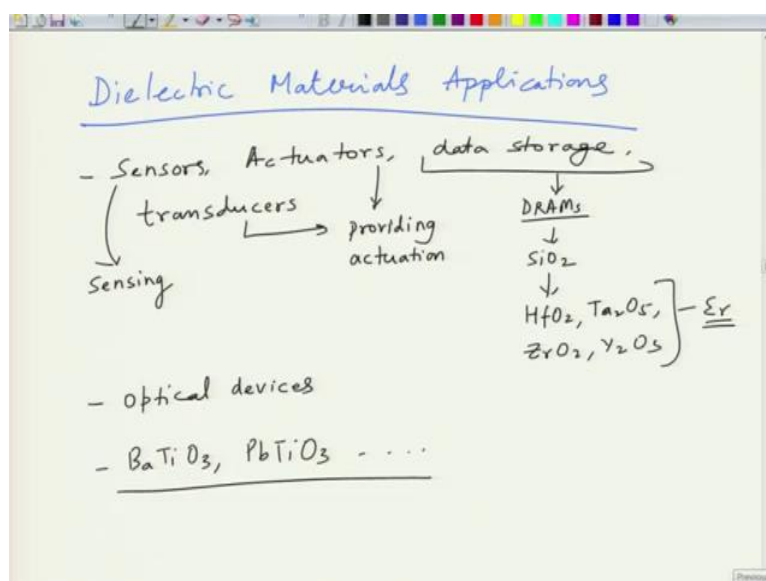 Dielectric Materials Applications
- Sensors, Actuators, data storage.
transducers
providing
actuation
Sensing
DRAMs
SiO2
HfO2, Ta2O5,
ZrO2, Y2O3
εr
- optical devices
- BaTiO3, PbTiO3 - ....
Previous